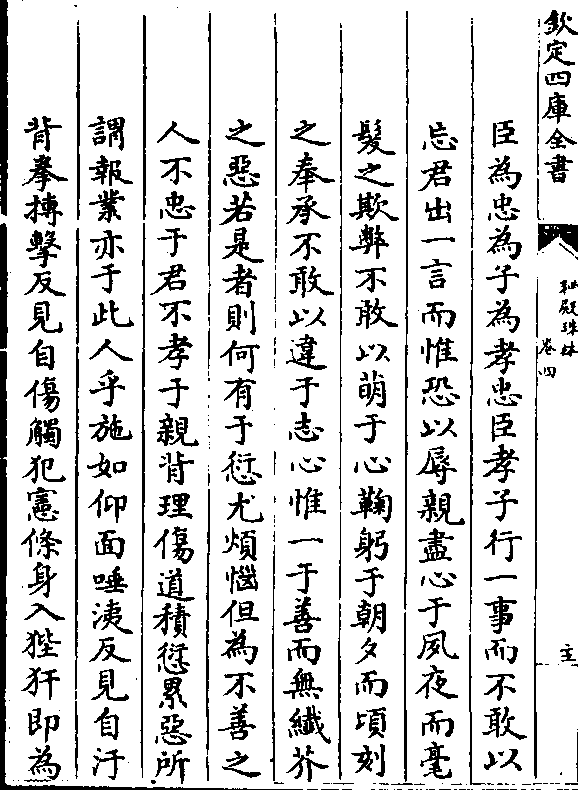 欽定四庫全書
秘殿珠林
卷四
臣為忠為子為孝忠臣孝子行一事而不敢以
忘君出一言而惟恐以辱親盡心于夙夜而毫
髮之欺弊不敢以萌于心鞠躬于朝夕而頃刻
之奉承不敢以違于志心惟一于善而無纖芥
之惡若是者則何有于愆尤煩惱但為不善之
人不忠于君不孝于親背理傷道積愆累惡所
謂報業亦于此人乎施如仰面唾洟反見自汙
背拳搏擊反見自傷觸犯憲條身入狴犴即為